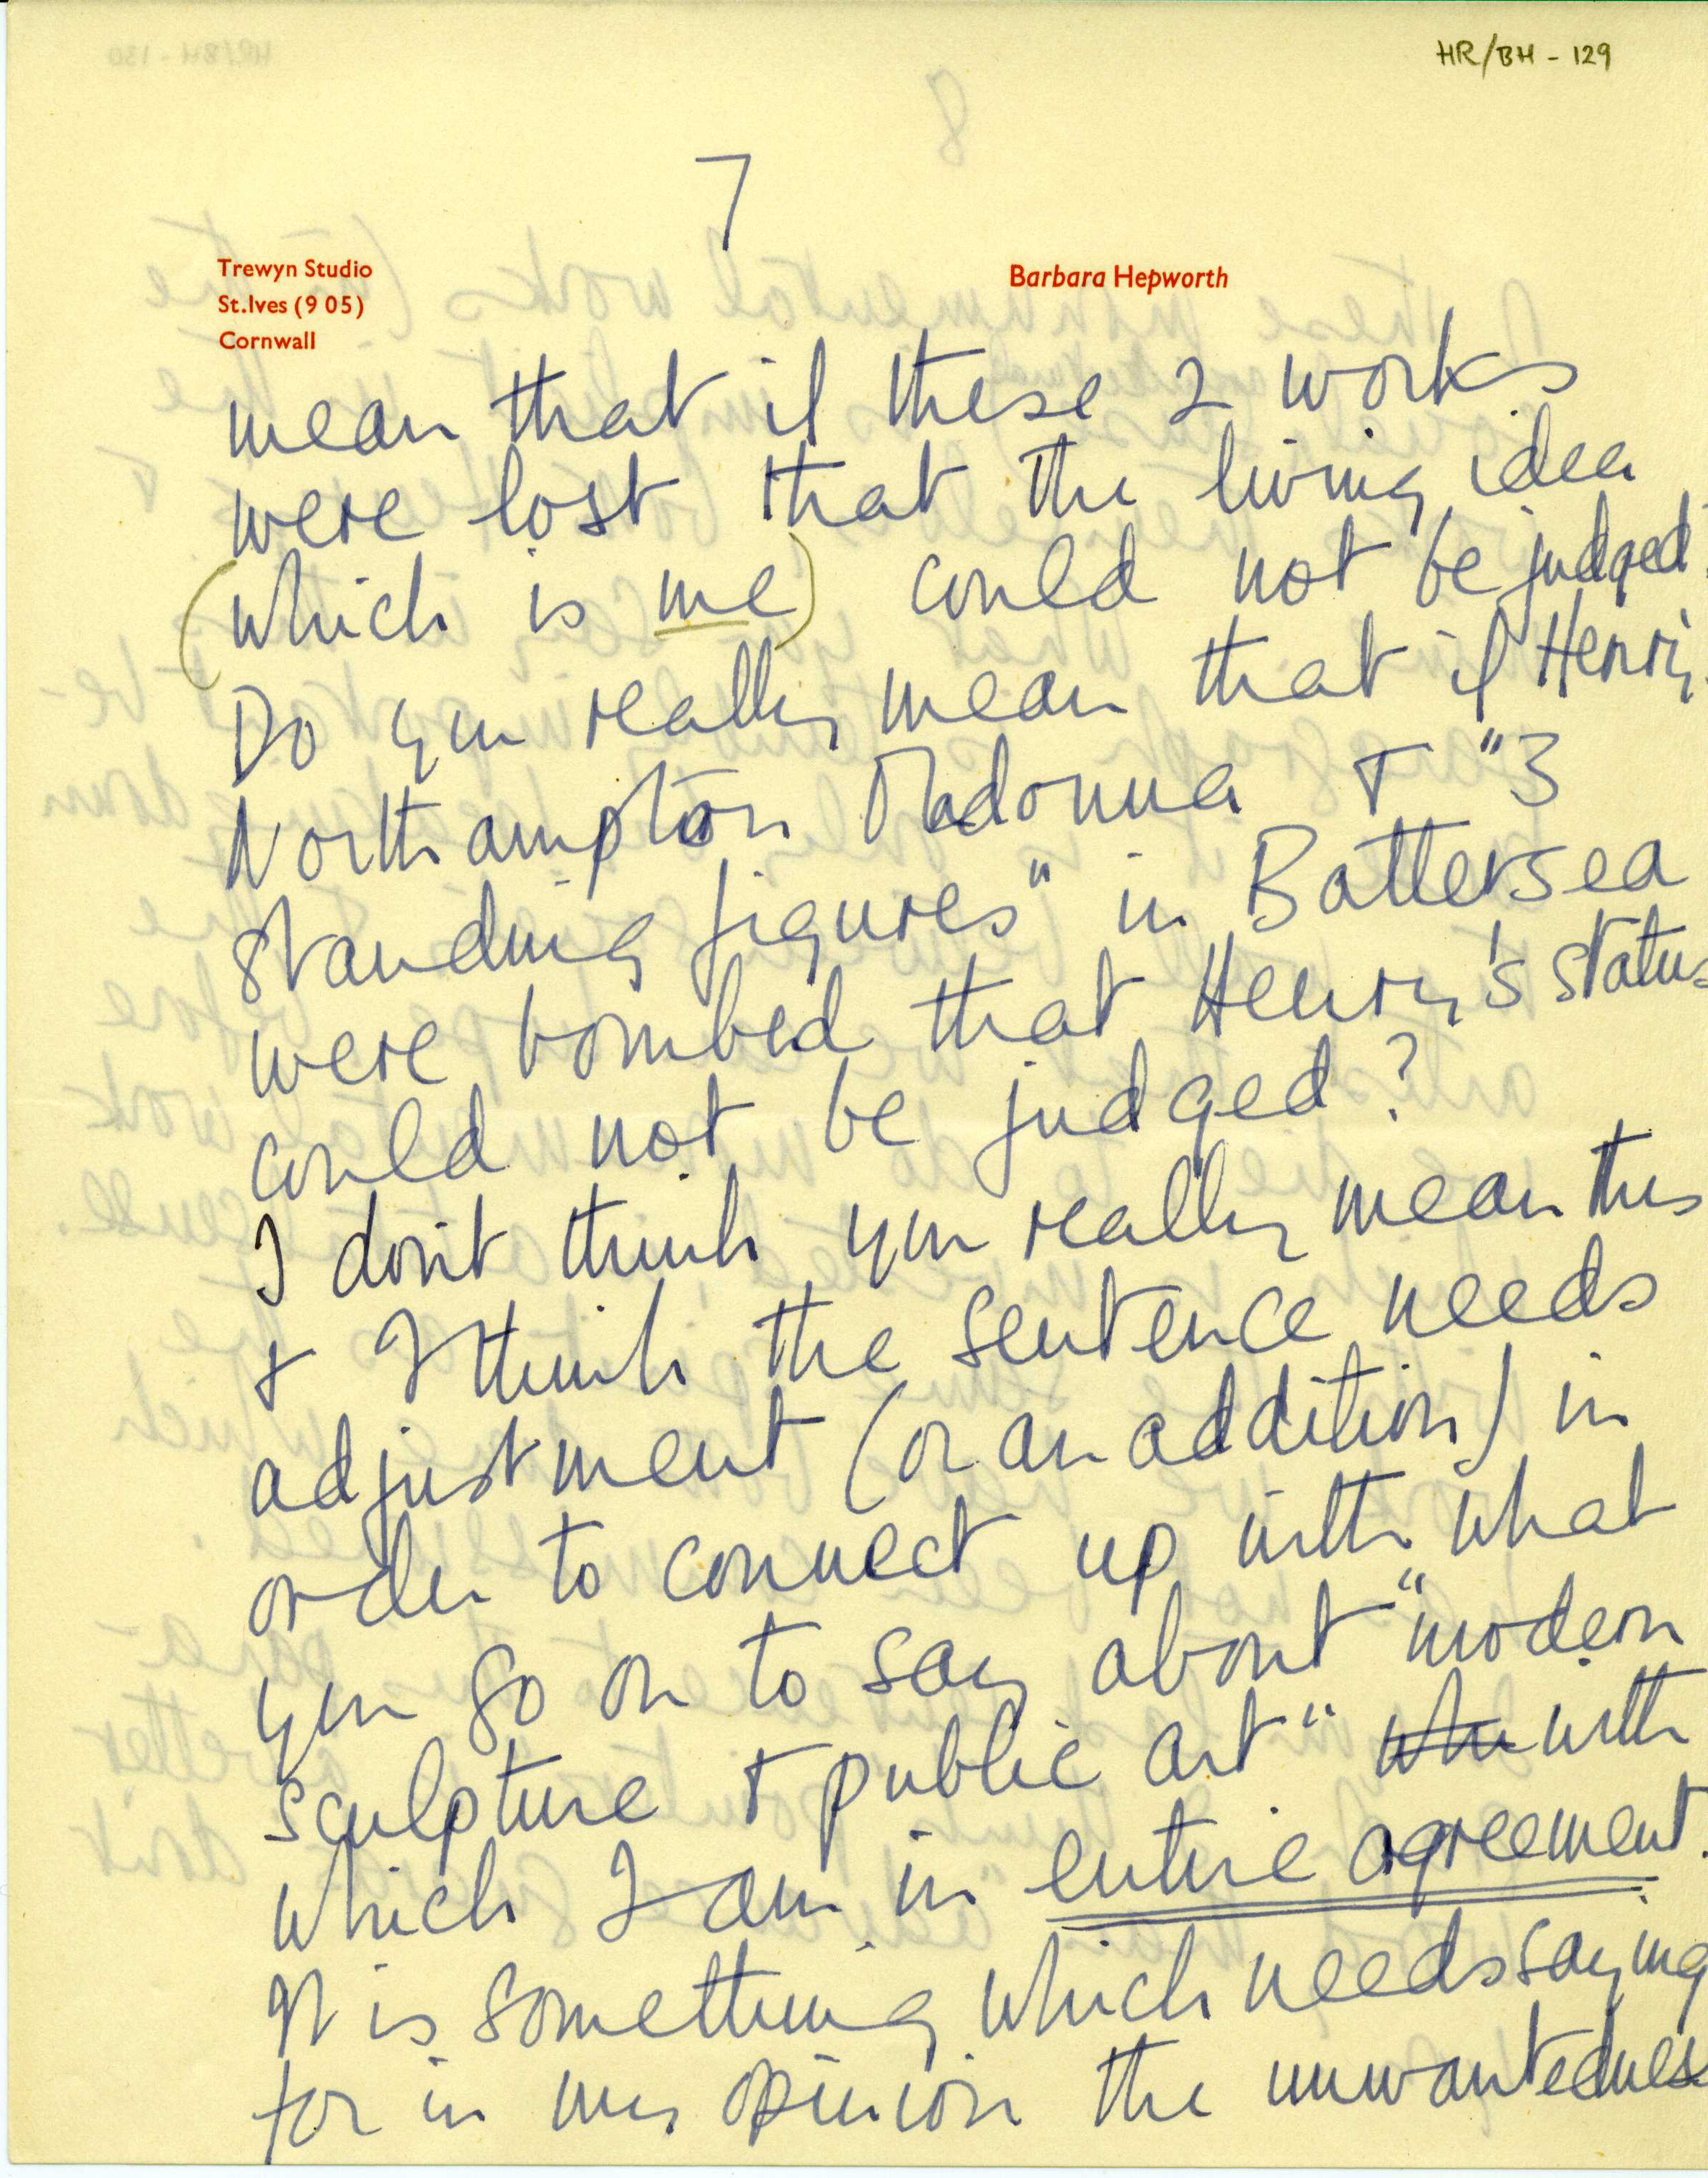 HR/BH - 129
7
Trewyn Studio
St.Ives (9 05)
Cornwall
Barbara Hepworth
mean that if these 2 works
were lost that the living idea
(which is me) could not be judged.
Do you really mean that if Henry's
Northampton Madonna & "3
standing figures" in Battersea
were bombed that Henry's status
could not be judged?
I don't think you really mean this
& I think the sentence needs
adjustment (or an addition) in
order to connect up with what
you go on to say about "modern
sculpture & public art" with
which I am in entire agreement.
It is something which needs saying
for in my opinion the unwantedness